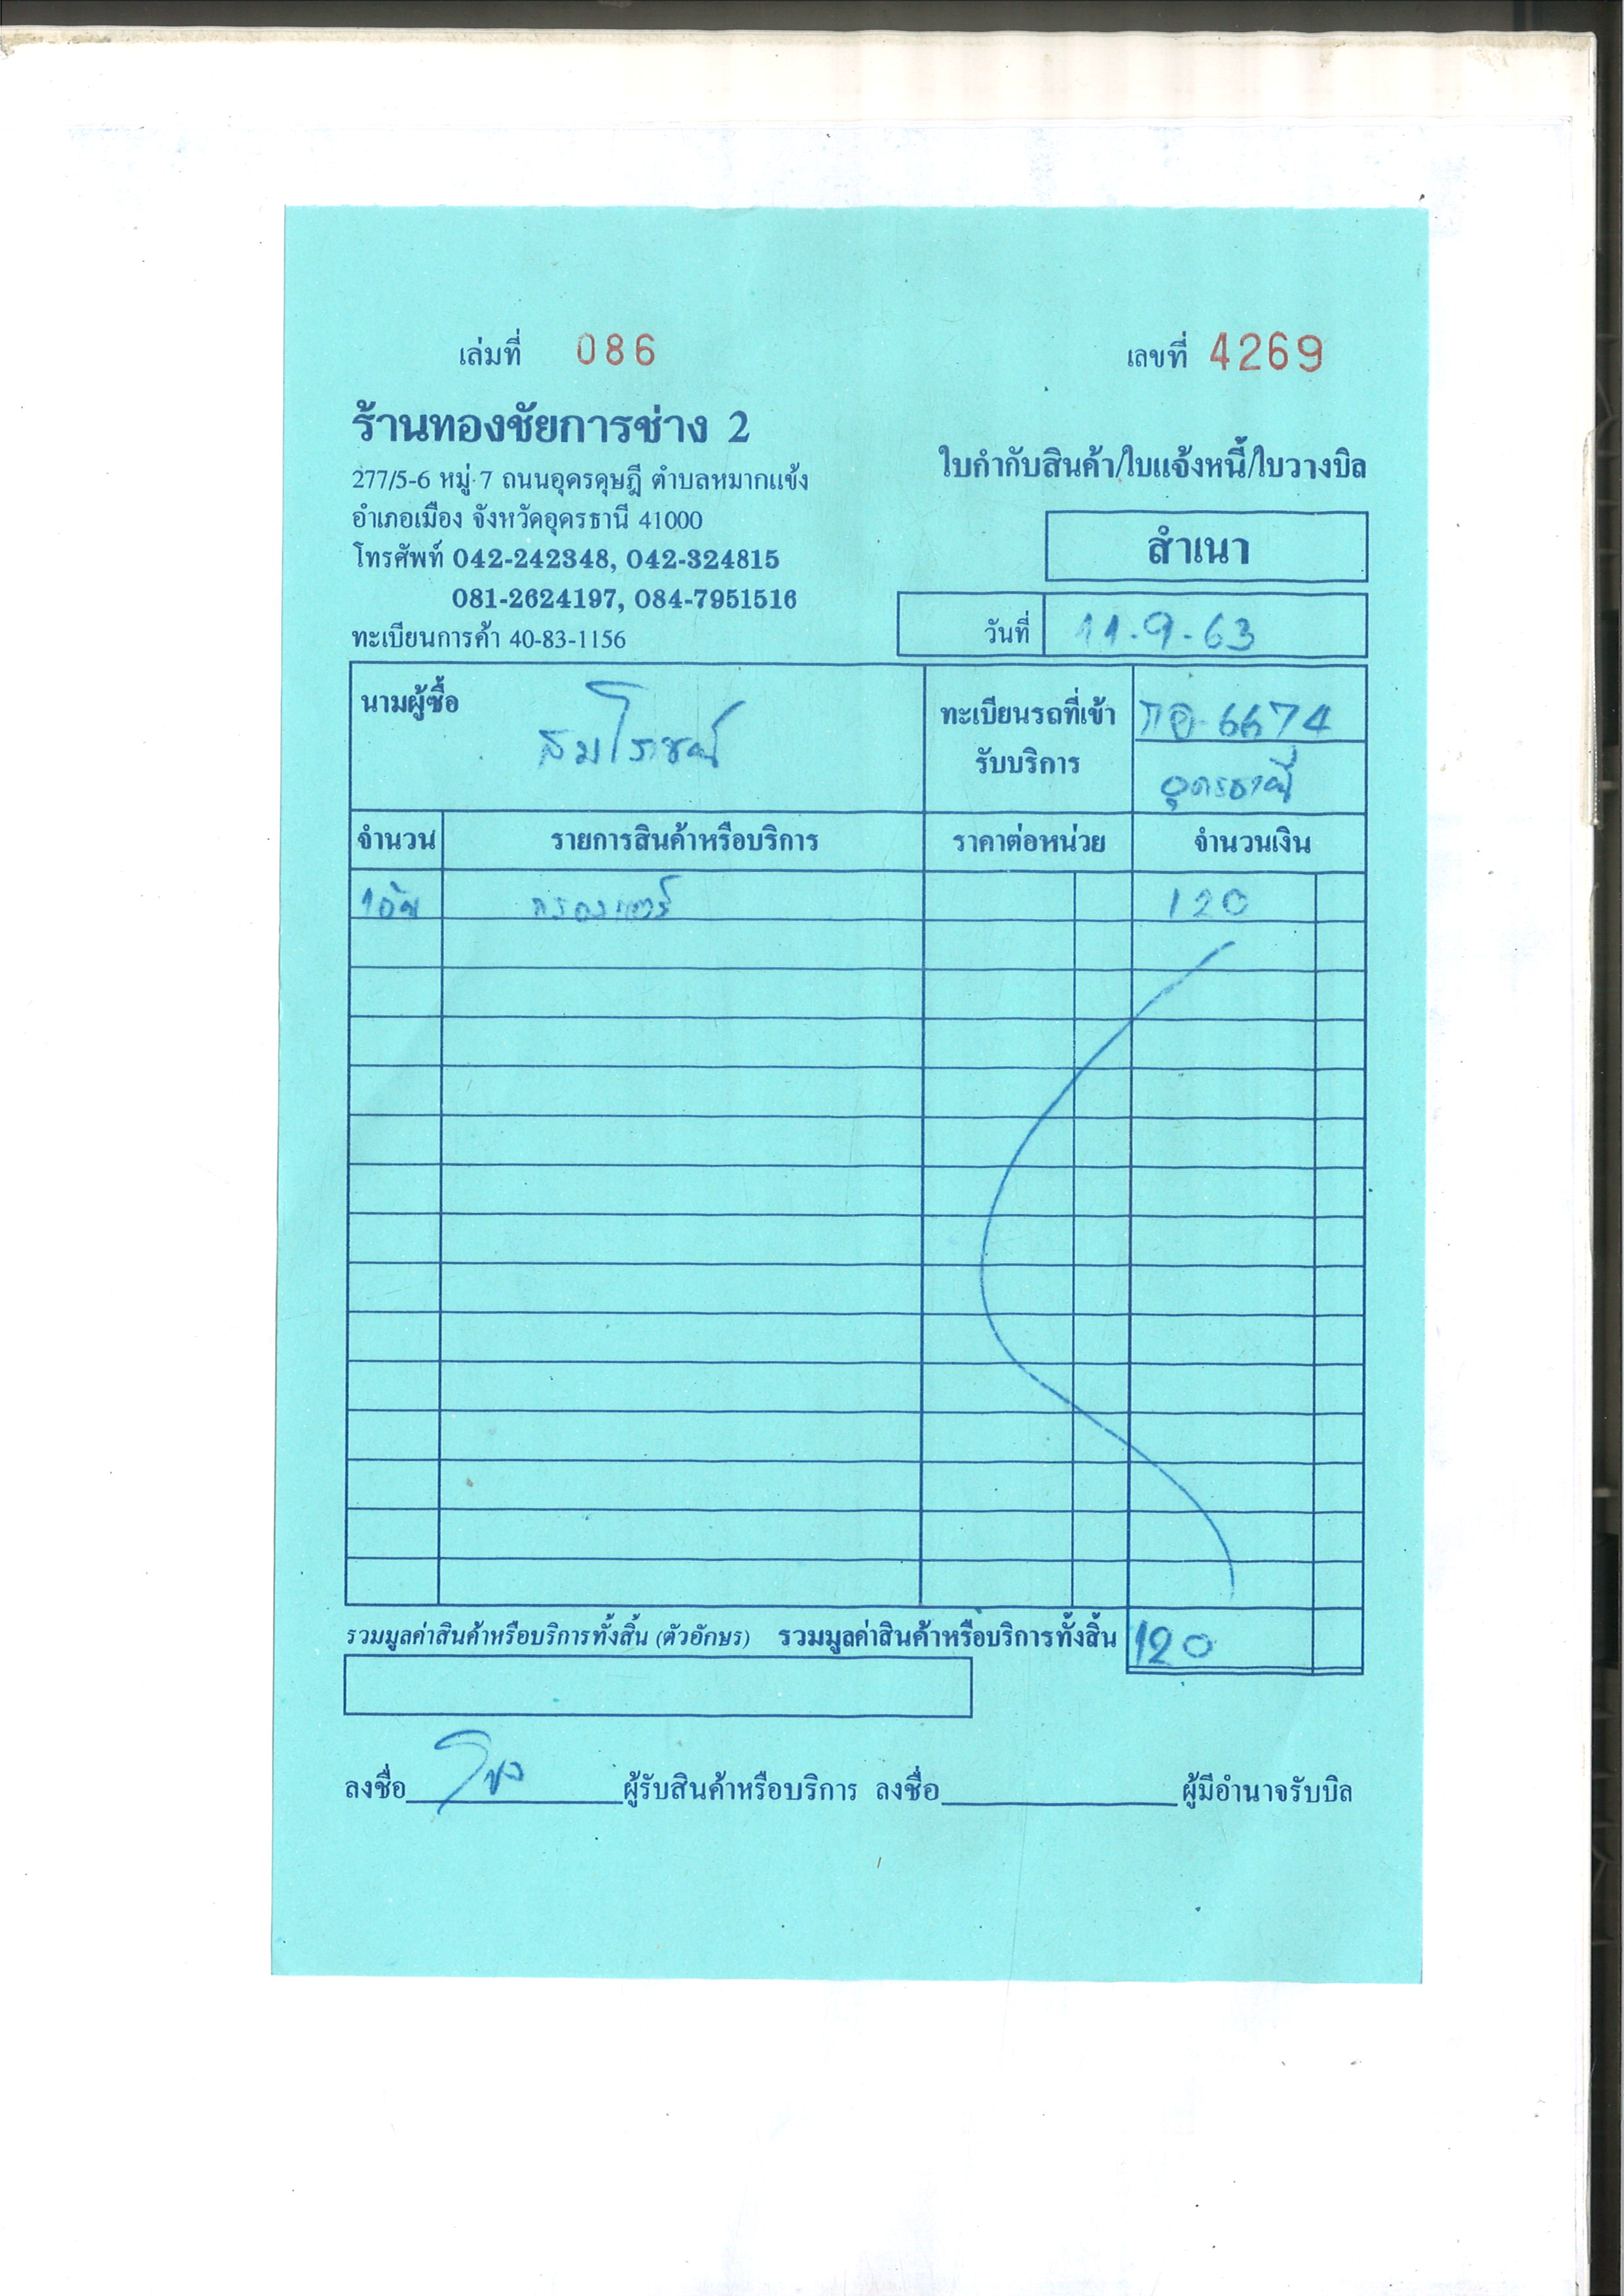 เล่มที่ 086
เลขที่ 4269
ร้านทองชัยการช่าง 2
277/5-6 หมู่ 7 ถนนอุดรดุษฎี ตำบลหมากแข้ง
อำเภอเมือง จังหวัดอุดรธานี 41000
โทรศัพท์ 042-242348, 042-324815
081-2624197, 084-7951516
ทะเบียนการค้า 40-83-1156
ใบกำกับสินค้า/ใบแจ้งหนี้/ใบวางบิล
สำเนา
วันที่ 11-9-63
นามผู้ซื้อ
ทะเบียนรถที่เข้า 6674
รับบริการ อุดรธานี
จำนวน รายการสินค้าหรือบริการ ราคาต่อหน่วย จำนวนเงิน
120
รวมมูลค่าสินค้าหรือบริการทั้งสิ้น (ตัวอักษร) รวมมูลค่าสินค้าหรือบริการทั้งสิ้น 120
ลงชื่อ ผู้รับสินค้าหรือบริการ ลงชื่อ ผู้มีอำนาจรับบิล